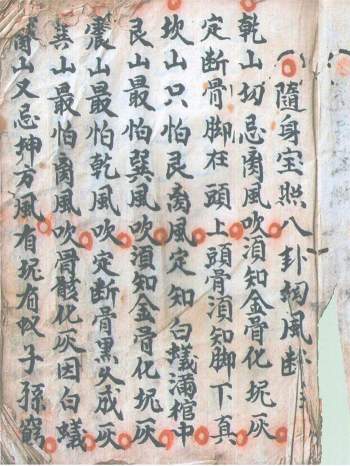 隨身宝照八卦切風断
乾山切忌離風吹須知金骨化坭灰
定断骨脚在頭上頭骨須知脚下真
坎山只怕艮离風定知白蟻滿棺中
艮山最怕巽風吹須知金骨化坭灰
震山最怕乾風吹定断骨黑久成灰
巽山最怕离風吹骨骸化灰因白蟻
山又忌坤方風有坭有水子孫窮